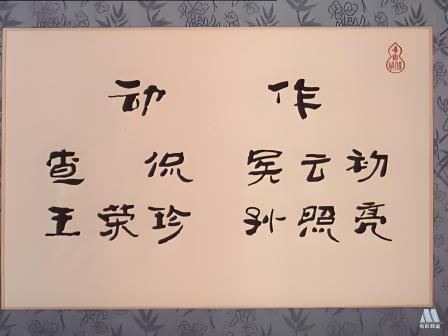 动作
查侃 吴云初
王荣珍 孙照亮